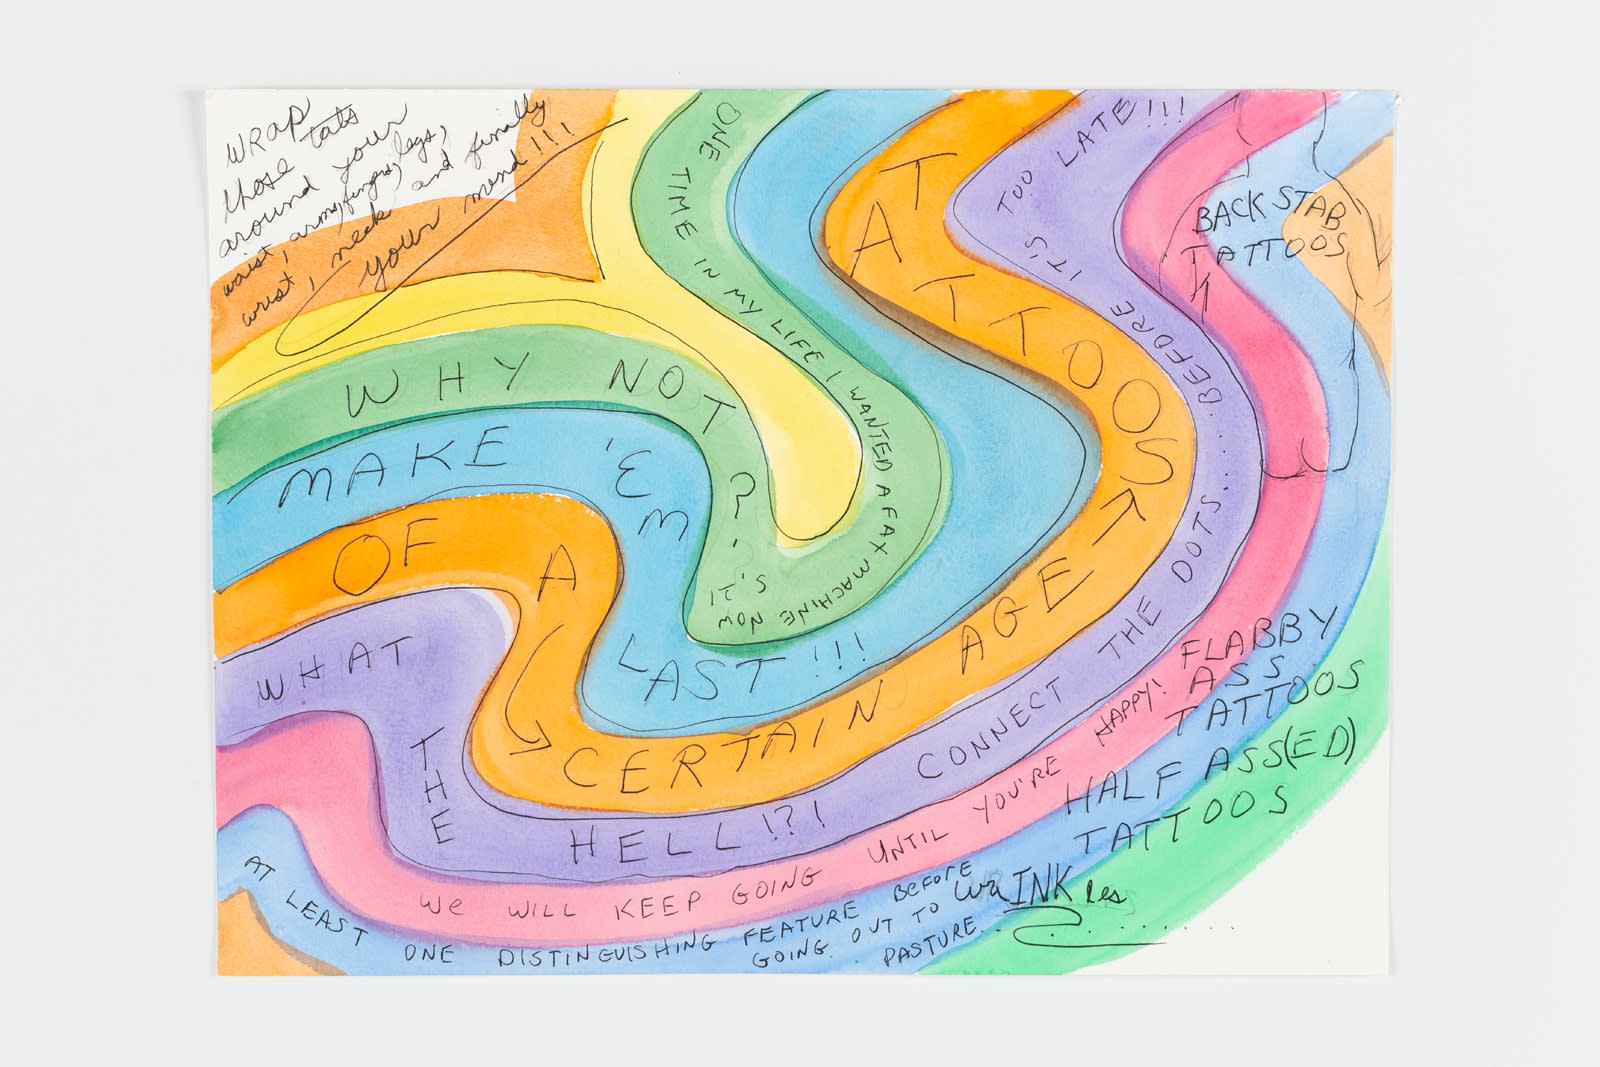 WRAP
those tats
around your
waist, arms, fingers, legs,
wrist, neck and finally
your mend!!!
WHY NOT?
ONE TIME IN MY LIFE I WANTED A FAX MACHINE NOW IT'S ?
MAKE 'EM LAST!!!
TATTOOS
OF A CERTAIN AGE
WHAT THE HELL!?!
CONNECT THE DOTS.....BEFORE IT'S TOO LATE!!!
WE WILL KEEP GOING UNTIL YOU'RE HAPPY!
AT LEAST ONE DISTINGUISHING FEATURE BEFORE
GOING OUT TO
PASTURE..
BACK STAB
TATTOOS
FLABBY
ASS
TATTOOS
HALF ASS(ED)
TATTOOS
wrINKles